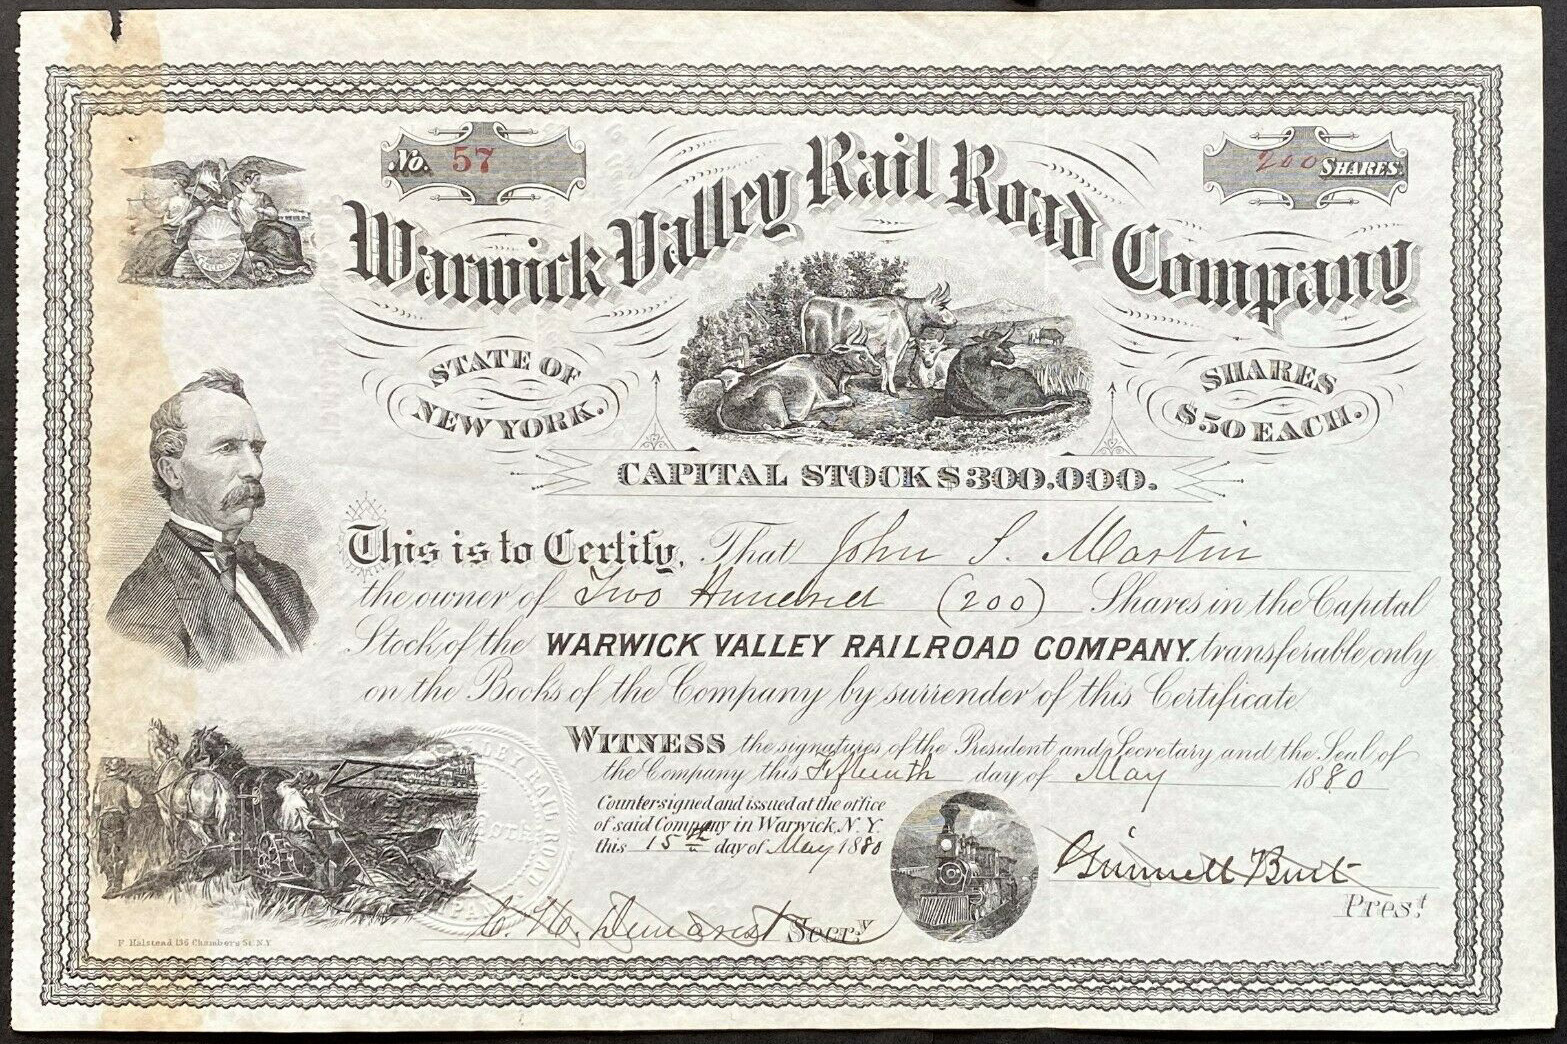 No. 57
200 SHARES.
Warwick Valley Rail Road Company
STATE OF
NEW YORK.
SHARES
$50 EACH.
CAPITAL STOCK $300.000.
This is to Certify, That John S. Martin
the owner of Two Hundred (200) Shares in the Capital
Stock of the WARWICK VALLEY RAILROAD COMPANY. transferable only
on the Books of the Company by surrender of this Certificate
WITNESS the signatures of the President and Secretary and the Seal of
the Company this Fifteenth day of May 1880
Countersigned and issued at the office
of said Company in Warwick, N.Y.
this 15th day of May 1880
Grinnell Burt
Pres.t
C. H. Demarest Secr.y
F. Halstead 136 Chambers St. N.Y